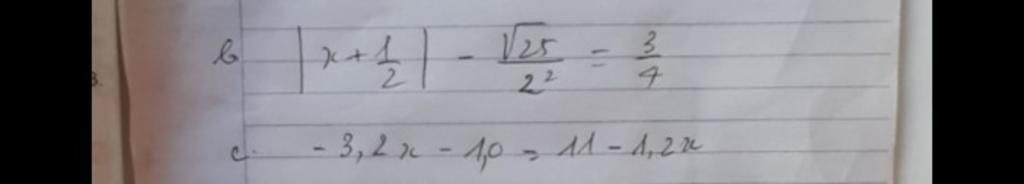 b |x + 1/2| - √25/2² = 3/4
c. - 3,2x - 1,0 = 11 - 1,2x